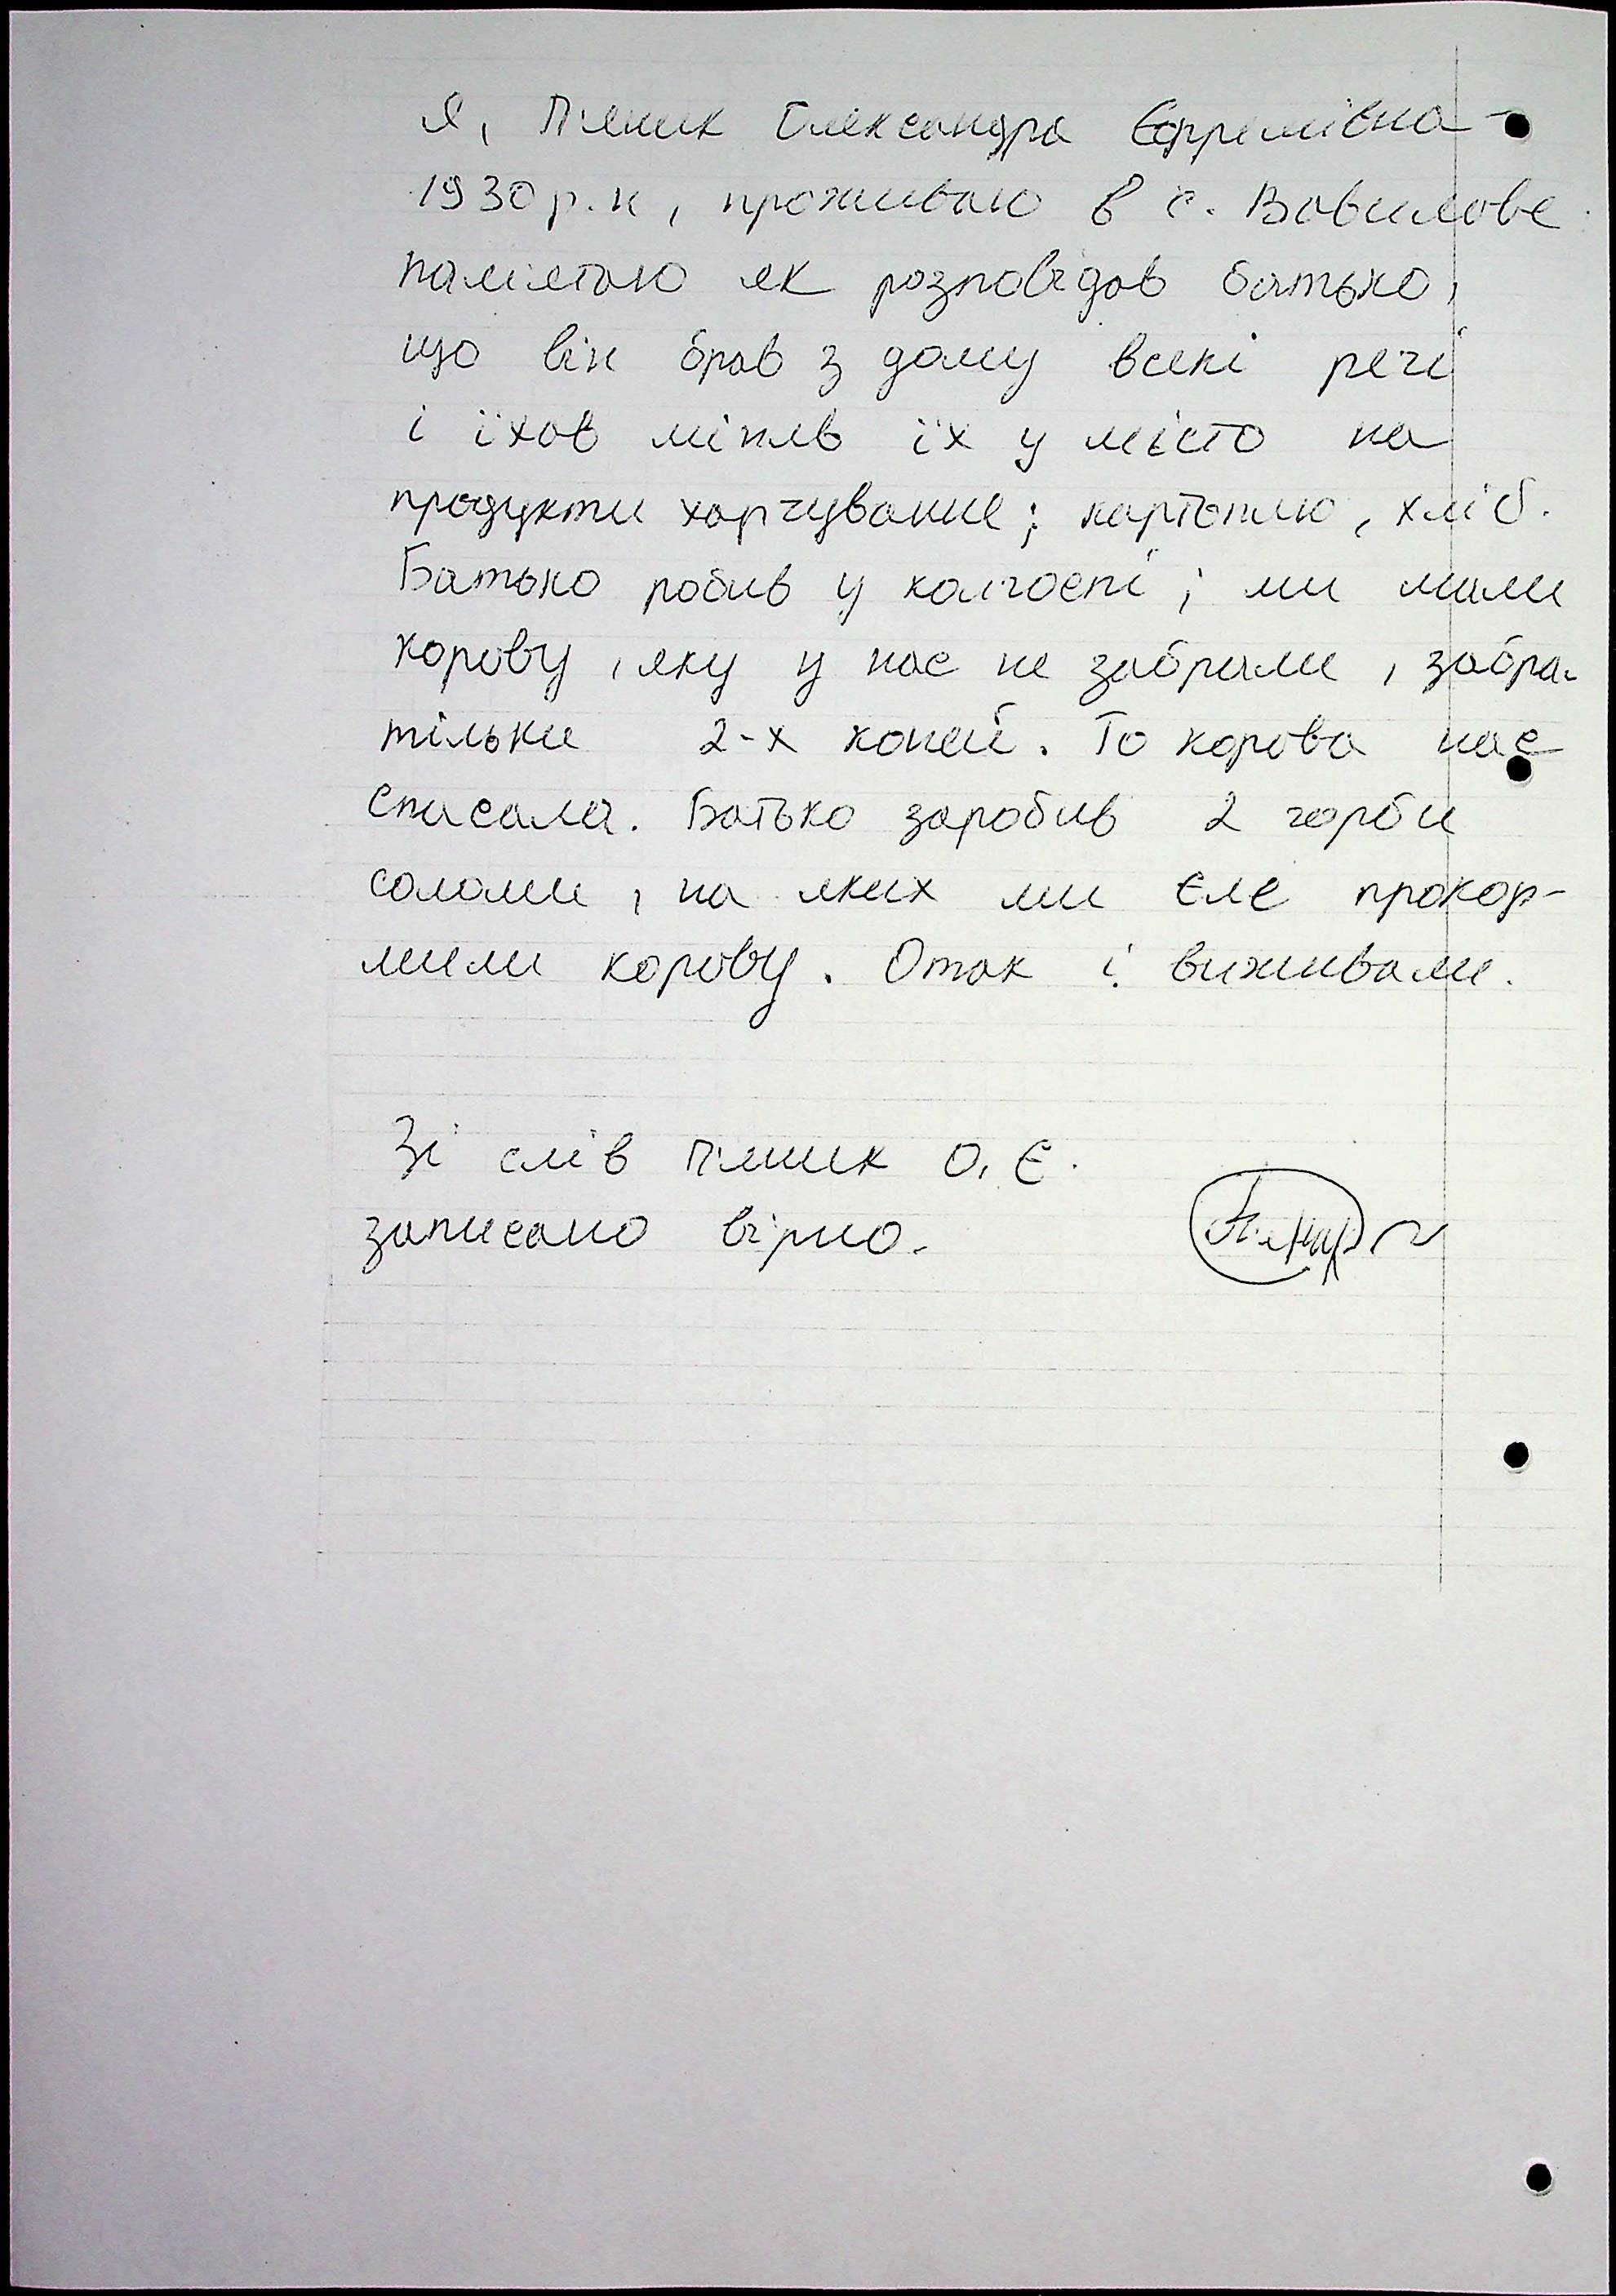 Я, Пляшник Олександра Єфремівна
1930 р.н, проживаю в с. Вавилове
памлятаю як розповідав батько,
що він брав з дому всякі речі
і їхав міняв їх у місто на
продукти харчування; картоплю, хліб.
Батько робив у колгоспі, ми мали
корову, яку у нас не забрали, забра-
тільки 2-х коней. То корова нас
спасала. Батько заробив 2 гарби
соломи, на яких ми єлє прокор-
мили корову. Отак і виживали.
Зі слів О. Є.
записано вірно.